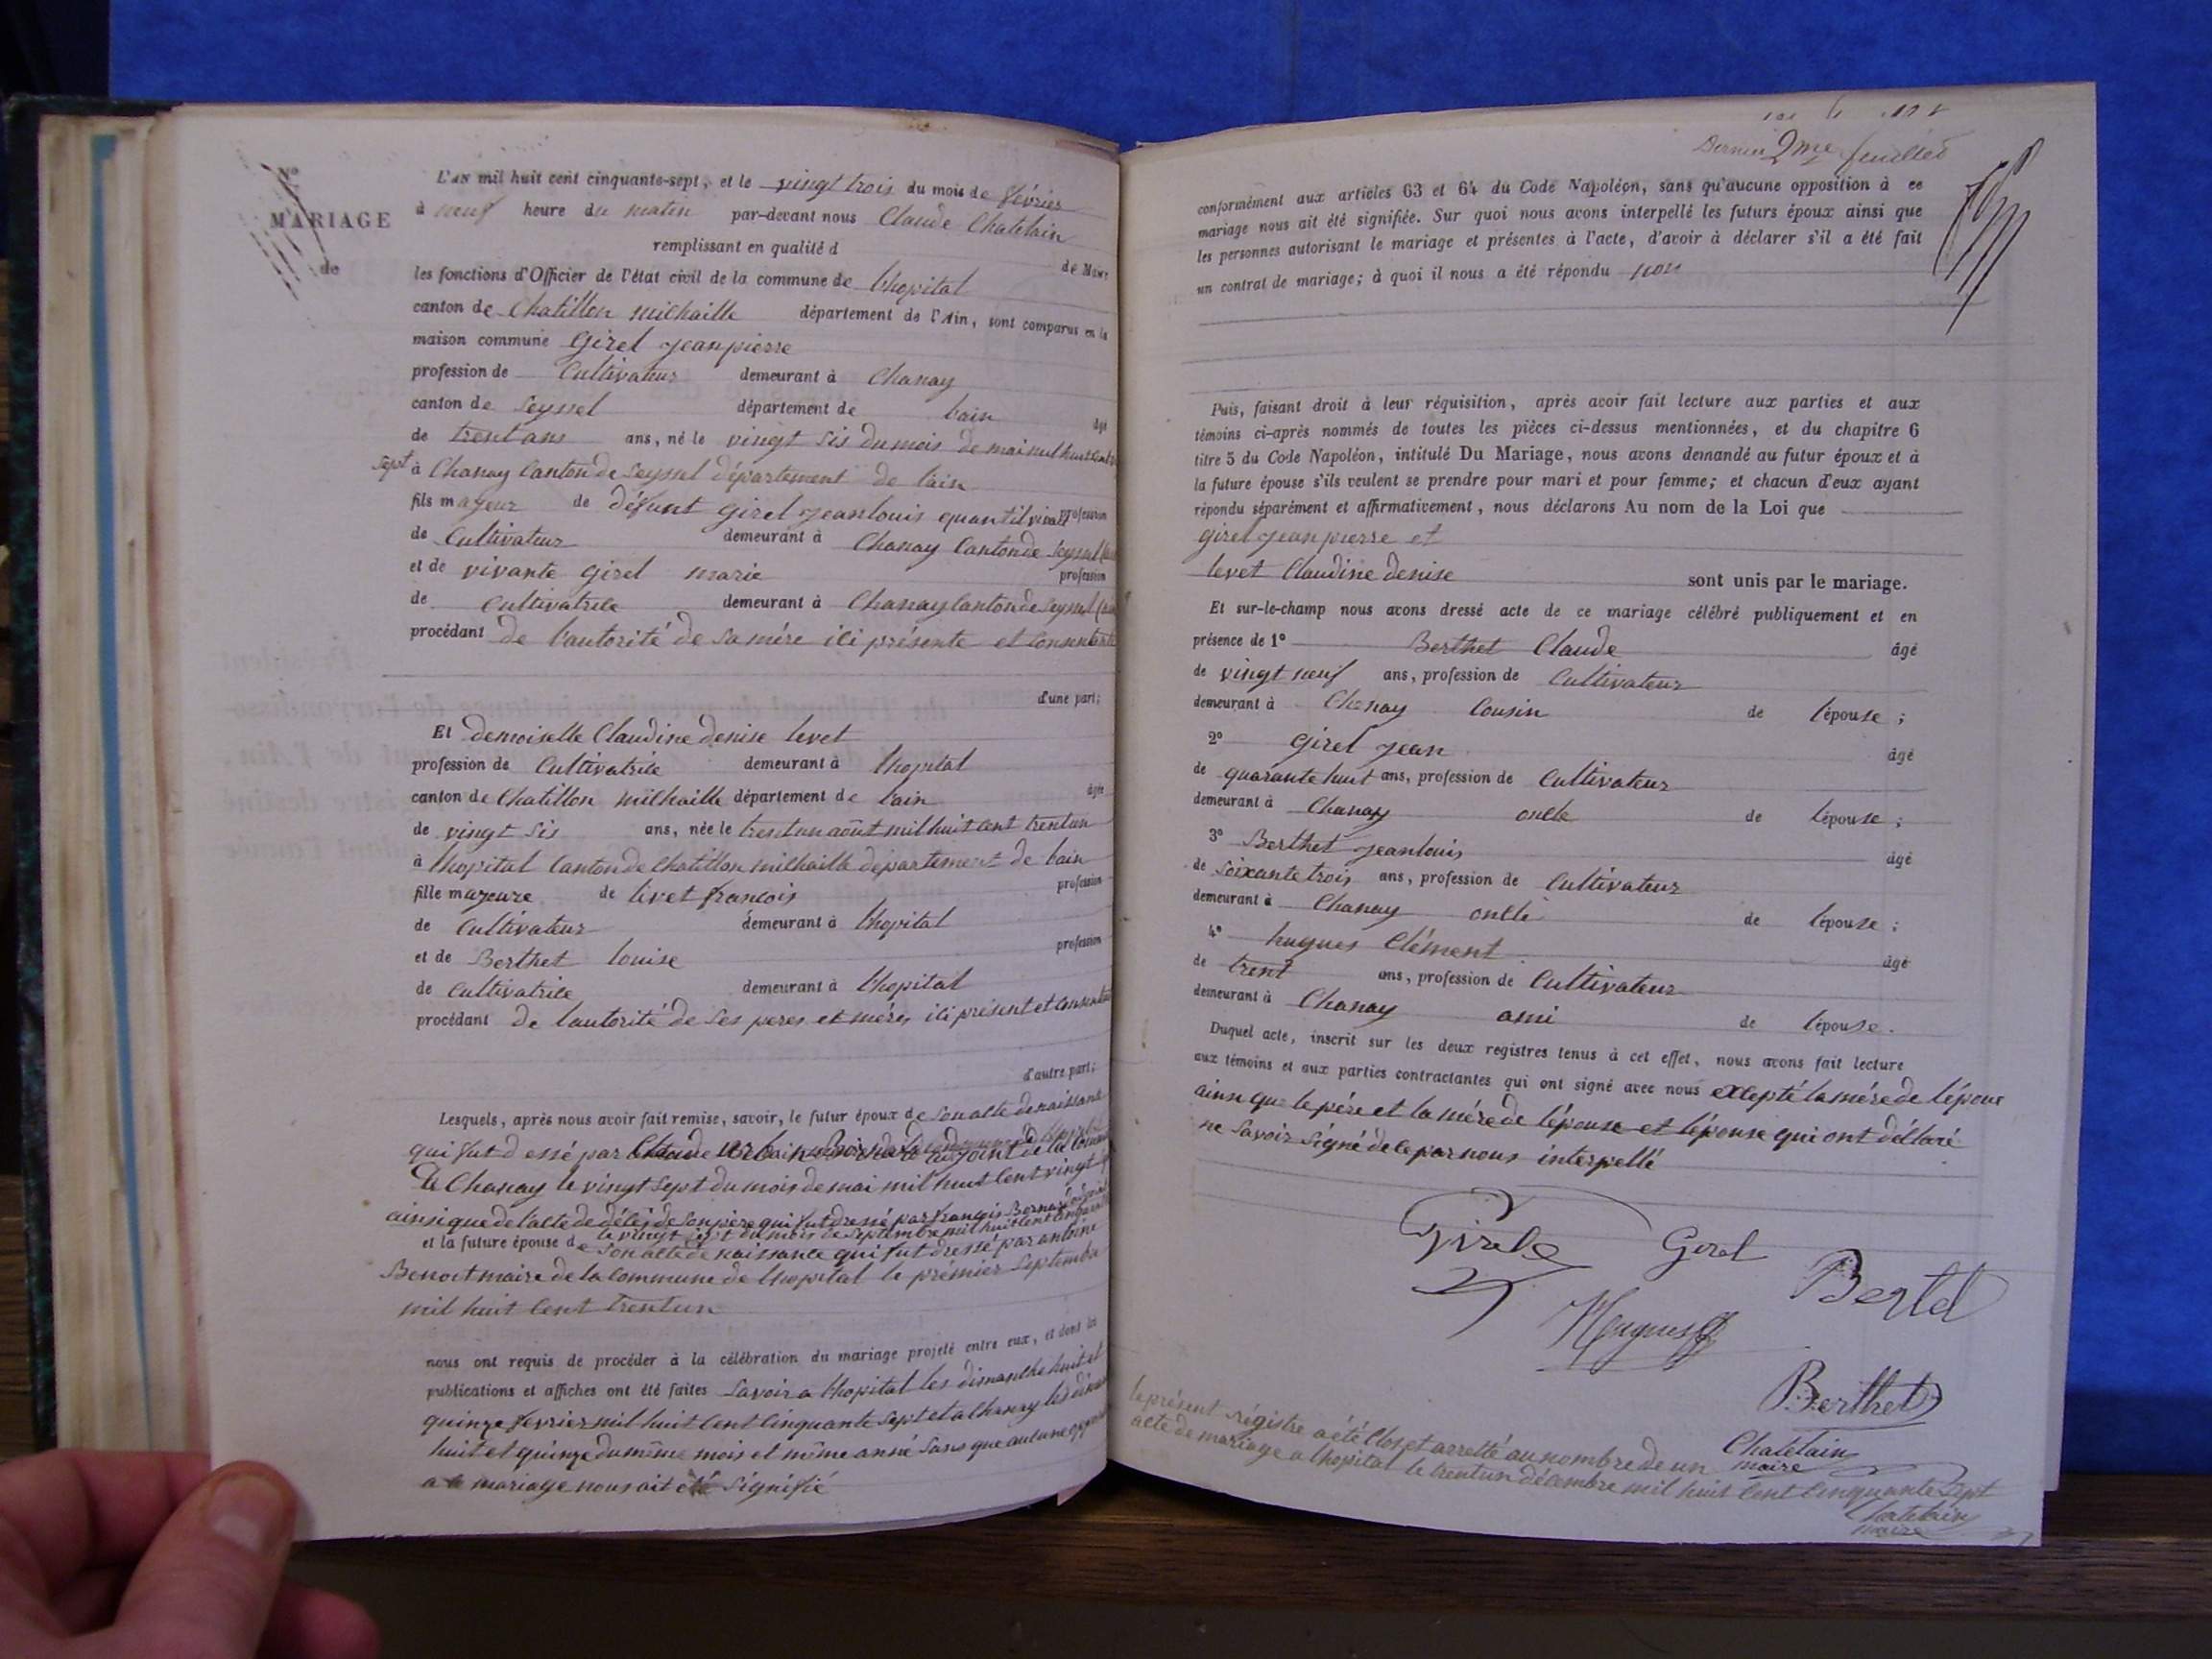 N°
MARIAGE
de
L'AN mil huit cent cinquante-sept, et le vingt trois du mois de février
à neuf heure du matin par-devant nous Claude Chatelain
remplissant en qualité d de Maire
les fonctions d'Officier de l'état civil de la commune de lhopital
canton de Chatillon milhaille département de l'Ain, sont comparus en la
maison commune Girel jeanpierre
profession de Cultivateur demeurant à Chanay
canton de Seyssel département de lain âgé
de trent ans ans, né le vingt sis du mois de mai mil huit cent
sept à Chanay Canton de Seyssel département de lain
fils mageur de défunt girel jeanlouis quantil vivait profession
de Cultivateur demeurant à Chanay Canton de Seyssel
et de vivante girel marie profession
de Cultivatrice demeurant à Chanay Canton de Seyssel
procédant de lautorité de sa mére ici présente et Consentante
d'une part;
Et demoiselle Claudine denise levet
profession de Cultivatrice demeurant à lhopital
canton de Chatillon milhaille département de lain âgée
de vingt sis ans, née le trentun août mil huit cent trentun
à lhopital Canton de Chatillon milhaille département de lain
fille mageure de livet francois profession
de Cultivateur demeurant à lhopital
et de Berthet louise profession
de Cultivatrice demeurant à lhopital
procédant de lautorité de ses peres et méres ici présent et
d'autre part;
Lesquels, après nous avoir fait remise, savoir, le futur époux de Son acte de naissance
qui fut d essé par adjoint de la
de Chanay le vingt sept du mois de mai mil huit Cent vingt
ainsi que de lacte de décés de son pére qui fut dressé par francois Bernard
le vingt sept du mois de Septembre mil huit Cent
et la future épouse de Son acte de naissance qui fut dressé par antoine
Benoit maire de la Commune de lhopital le prémier Septembre
mil huit Cent trentun
nous ont requis de procéder à la célébration du mariage projeté entre eux, et dont les
publications et affiches ont été faites Savoir a lhopital les dimanche huit et
quinze fevrier mil huit Cent Cinquante Sept et a Chanay les
huit et quinze du même mois et même anné Sans que aucune
a ce mariage nous ait été Signifié
Dernier 2me feuillet
conformément aux articles 63 et 64 du Code Napoléon, sans qu'aucune opposition à ce
mariage nous ait été signifiée. Sur quoi nous avons interpellé les futurs époux ainsi que
les personnes autorisant le mariage et présentes à l'acte, d'avoir à déclarer s'il a été fait
un contrat de mariage; à quoi il nous a été répondu non
Puis, faisant droit à leur réquisition, après avoir fait lecture aux parties et aux
témoins ci-après nommés de toutes les pièces ci-dessus mentionnées, et du chapitre 6
titre 5 du Code Napoléon, intitulé Du Mariage, nous avons demandé au futur époux et à
la future épouse s'ils veulent se prendre pour mari et pour femme; et chacun d'eux ayant
répondu séparément et affirmativement, nous déclarons Au nom de la Loi que
girel jeanpierre et
levet Claudine denise sont unis par le mariage.
Et sur-le-champ nous avons dressé acte de ce mariage célébré publiquement et en
présence de 1° Berthet Claude âgé
de vingt neuf ans, profession de Cultivateur
demeurant à Chanay Cousin de lépouse ;
2° girel jean âgé
de quarante huit ans, profession de Cultivateur
demeurant à Chanay oncle de lépouse ;
3° Berthet jeanlouis âgé
de Soixante trois ans, profession de Cultivateur
demeurant à Chanay oncle de lépouse ;
4° hugues Clément âgé
de trent ans, profession de Cultivateur
demeurant à Chanay ami de lépouse.
Duquel acte, inscrit sur les deux registres tenus à cet effet, nous avons fait lecture
aux témoins et aux parties contractantes qui ont signé avec nous excepté la mére de lépoux
ainsi que le pére et la mére de lépouse et lépouse qui ont déclaré
ne Savoir Signé de ce par nous interpellé
Girel Gerel
Bertet
Hugues
Berthet
Chatelain
maire
le présent régistre a été Clos et arretté au nombre de un
acte de mariage a lhopital le trentun décembre mil huit Cent Cinquante Sept
Chatelain
maire